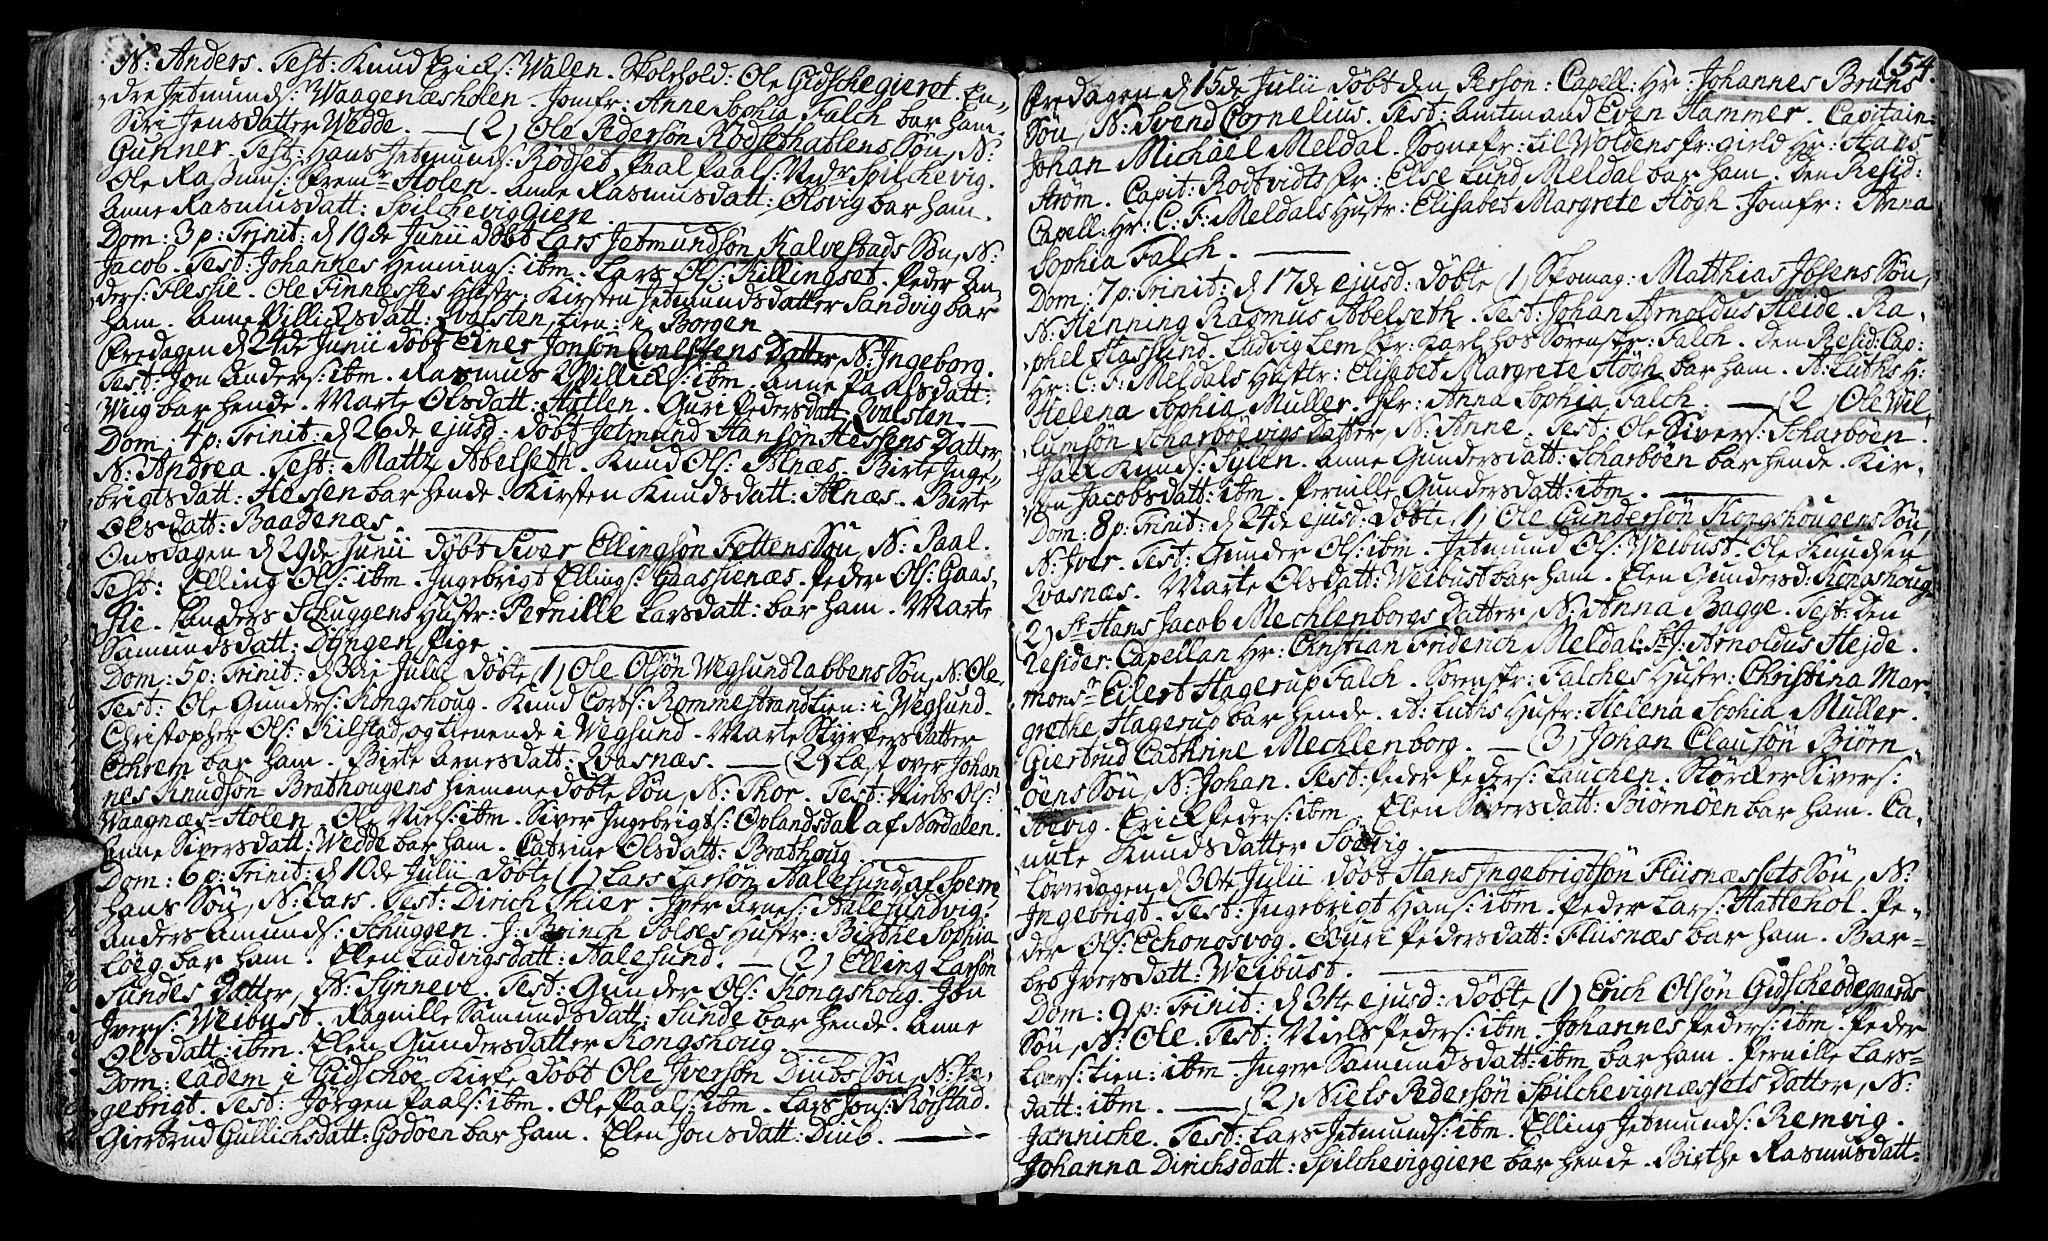 N: Anders. Test: Knud Ericks: Walen. Skolehold: Ole Gidschegieret. En-
dre Jetmunds: Waagenæsholen. Jomfr: Anne Sophia Falch bar ham.
Siri Jensdatter Wedde. — (2) Ole Pedersøn Rødsethatlens Søn, N:
Gunner. Test: Hans Jetmunds: Rødset. Paal Paals: Nedr Spilchevig.
Ole Rasmus: Frem Holen. Anne Rasmusdatt: Ølsvig bar ham.
Anne Rasmusdatt: Spilcheviggiere.
Dom: 3 p: Trinit: d 19de Junii døbt Lars Jetmundsøn Kalvestads Søn, N:
Jacob. Test: Johannes Hennings: ibm. Lars Ols: Killingset. Peder An-
ders: Flessie. Ole Finnesses Hustr: Kirsten Jetmundsdatter Sandvig bar
ham. Anne Willicksdatt: Qvalsten, tien: i Borgen.
Fredagen d 24de Junii døbt Einer Jonsøn Qvalstens Datter, N: Ingeborg.
Test: Jon Anders: ibm. Rasmus Willicks: ibm. Anne Paalsdatt:
Wiig bar hende. Marte Olsdatt: Hatlen. Guri Pedersdatt: Qvalsten. —
Dom: 4 p: Trinit: d 26de ejusd. døbt Jetmund Hansøn Hessens Datter,
N: Andrea. Test: Mattz Abelseth. Knud Ols: Alnæs. Birte Inge-
brigtsdatt: Hessen bar hende. Kirsten Knudsdatt: Alnæs. Birte
Olsdatt: Baadenæs.
Onsdagen d 29de Junii døbt Sivar Ellingsøn Fottens Søn, N: Paal.
Test: Elling Ols: ibm. Ingebrigt Ellings: Gaassienæs. Peder Ols: Gaas-
sie. Landers Schuggens Hustr: Pernille Larsdatt: bar ham. Marte
Samundsdatt: Dyngen, Pige.
Dom: 5 p: Trinit: d 3die Julii døbte (1) Ole Olsøn Wegsundrabbens Søn, N: Ole.
Test: Ole Gunders: Kongshoug. Knud Corts: Rommestrand tien: i Wegsund.
Christopher Ols: Kilstad, og tienende i Wegsund. Marte Styrkersdatter
Ethrem bar ham. Birte Arnesdatt: Qvasnæs. — (2) Læst over Johan
nes Knudsøn Brathougens hiemmedøbte Søn, N: Thor. Test: Niels Ols:
Waagnæs-Holen. Ole Niels: ibm. Siver Ingebrigts: Oplandsdal af Nordalen.
Anne Siversdatt: Wedde bar ham. Catrine Olsdatt: Brathoug.
Dom: 6 p: Trinit: d 10de Julii døbte (1) Lars Larsøn Aalesund af Sperre
hans Søn, N: Lars. Test: Dirich Thier. Iver Arnes: Aalesundvig.
Anders Amunds: Schuggen. J. Brinch Solses Hustr: Birthe Sophia
Løeg bar ham. Elen Ludvigsdatt: Aalesund. — (2) Elling Larsøn
Sundes Datter, N: Synneve. Test: Gunder Ols: Kongshoug. Jon
Ivers: Weibust. Ragnille Samundsdatt: Sunde bar hende. Anne
Olsdatt: ibm. Elen Gundersdatter Kongshoug.
Dom: eadem i Gidschøe Kirke døbt Ole Iversøn Diubs Søn, N: In-
gebrigt. Test: Jørgen Paals: ibm. Ole Paals: ibm. Lars Jons: Rørstad.
Giertrud Gullichsdatt: Godøen bar ham. Elen Jonsdatt: Diub. —
154.
Fredagen d 15de Julii døbt den Person: Capell: Hr: Johannes Bruns
Søn, N: Svend Cornelius. Test: Amtmand Even Hammer. Capitain
Johan Michael Meldal. Sognepr: til Woldens Pr: gield Hr: Hans
Strøm. Capit: Rodtvidts Fr: Else Lund Meldal bar ham. Den Resid:
Capell: Hr: C. F. Meldals Hustr: Elisabet Margrete Høgh. Jomfr: Anna
Sophia Falch.
Dom: 7 p: Trinit: d 17de ejusd: døbte (1) Skomag: Matthias Ibsens Søn,
N: Henning Rasmus Abelseth. Test: Johan Arnoldus Heide. Ra-
phel Haslund. Ludvig Lem Fr: Karl hos Sorenskr: Falch. Den Resid: Cap:
Hr: C: F: Meldals Hustr: Elisabet Margrete Høgh bar ham. A: Luths H:
Helena Sophia Muller. Jfr: Anna Sophia Falch. — (2) Ole Wil
lumsøn Scharbøevigs Datter N: Anne. Test: Ole Sivers: Scharbøen.
Knuds: Sylen. Anne Gundersdatt: Scharbøen bar hende. Kir-
sten Jacobsdatt: ibm. Pernille Gundersdatt: ibm.
Dom: 8 p: Trinit: d 24de ejusd: døbte (1) Ole Gundersøn Kongshougens Søn,
N: Iver. Test: Gunder Ols: ibm. Jetmund Ols: Weibust. Ole Knudsen
Qvasnæs. Marte Olsdatt: Weibust bar ham. Elen Gundersd: Kongshoug.
(2) Sr Hans Jacob Mechlenborgs Datter, N: Anna Bagge. Test: den
resider: Capellan Hr: Christian Friderich Meldal: Sr J: Arnoldus Hejde.
monsr Eilert Hagerup Falch. Sorenskr: Falches Hustr: Christina Mar-
grethe Hagerup bar hende. A: Luths Hustr: Helena Sophia Muller.
Giertrud Cathrine Mechlenborg. — (3) Johan Clausøn Biørn
øens Søn, N: Johan. Test: Peder Peders: Lauchen. Størcker Sivers:
Søevig. Erick Peders: ibm. Elen Siversdatt: Biørnøen bar ham. Ca-
nute Knudsdatter Søevig.
Løverdagen d 30te Julii døbt Hans Ingebrigtsøn Fliisnæssets Søn, N:
Ingebrigt. Test: Ingebrigt Hans: ibm. Peder Lars: Hattehol. Pe-
der Ols: Echonosvog. Guri Pedersdatt: Fliisnæs bar ham. Bar-
bro Iversdatt: Weibust.
Dom: 9 p: Trinit: d 31te ejusd: døbte (1) Erich Olsøn Gidschødegaards
Søn, N: Ole. Test: Niels Peders: ibm. Johannes Peders: ibm. Peder
Lars: tien: ibm. Inger Samundsdatt: ibm bar ham. Pernille Lars-
datt: ibm. — (2) Niels Pedersøn Spilchevignæssets Datter, N:
Janniche. Test: Lars Jetmunds: ibm. Elling Jetmunds: Remvig.
Johanna Dirichsdatt: Spilcheviggiere bar hende. Birthe Rasmusdatt: